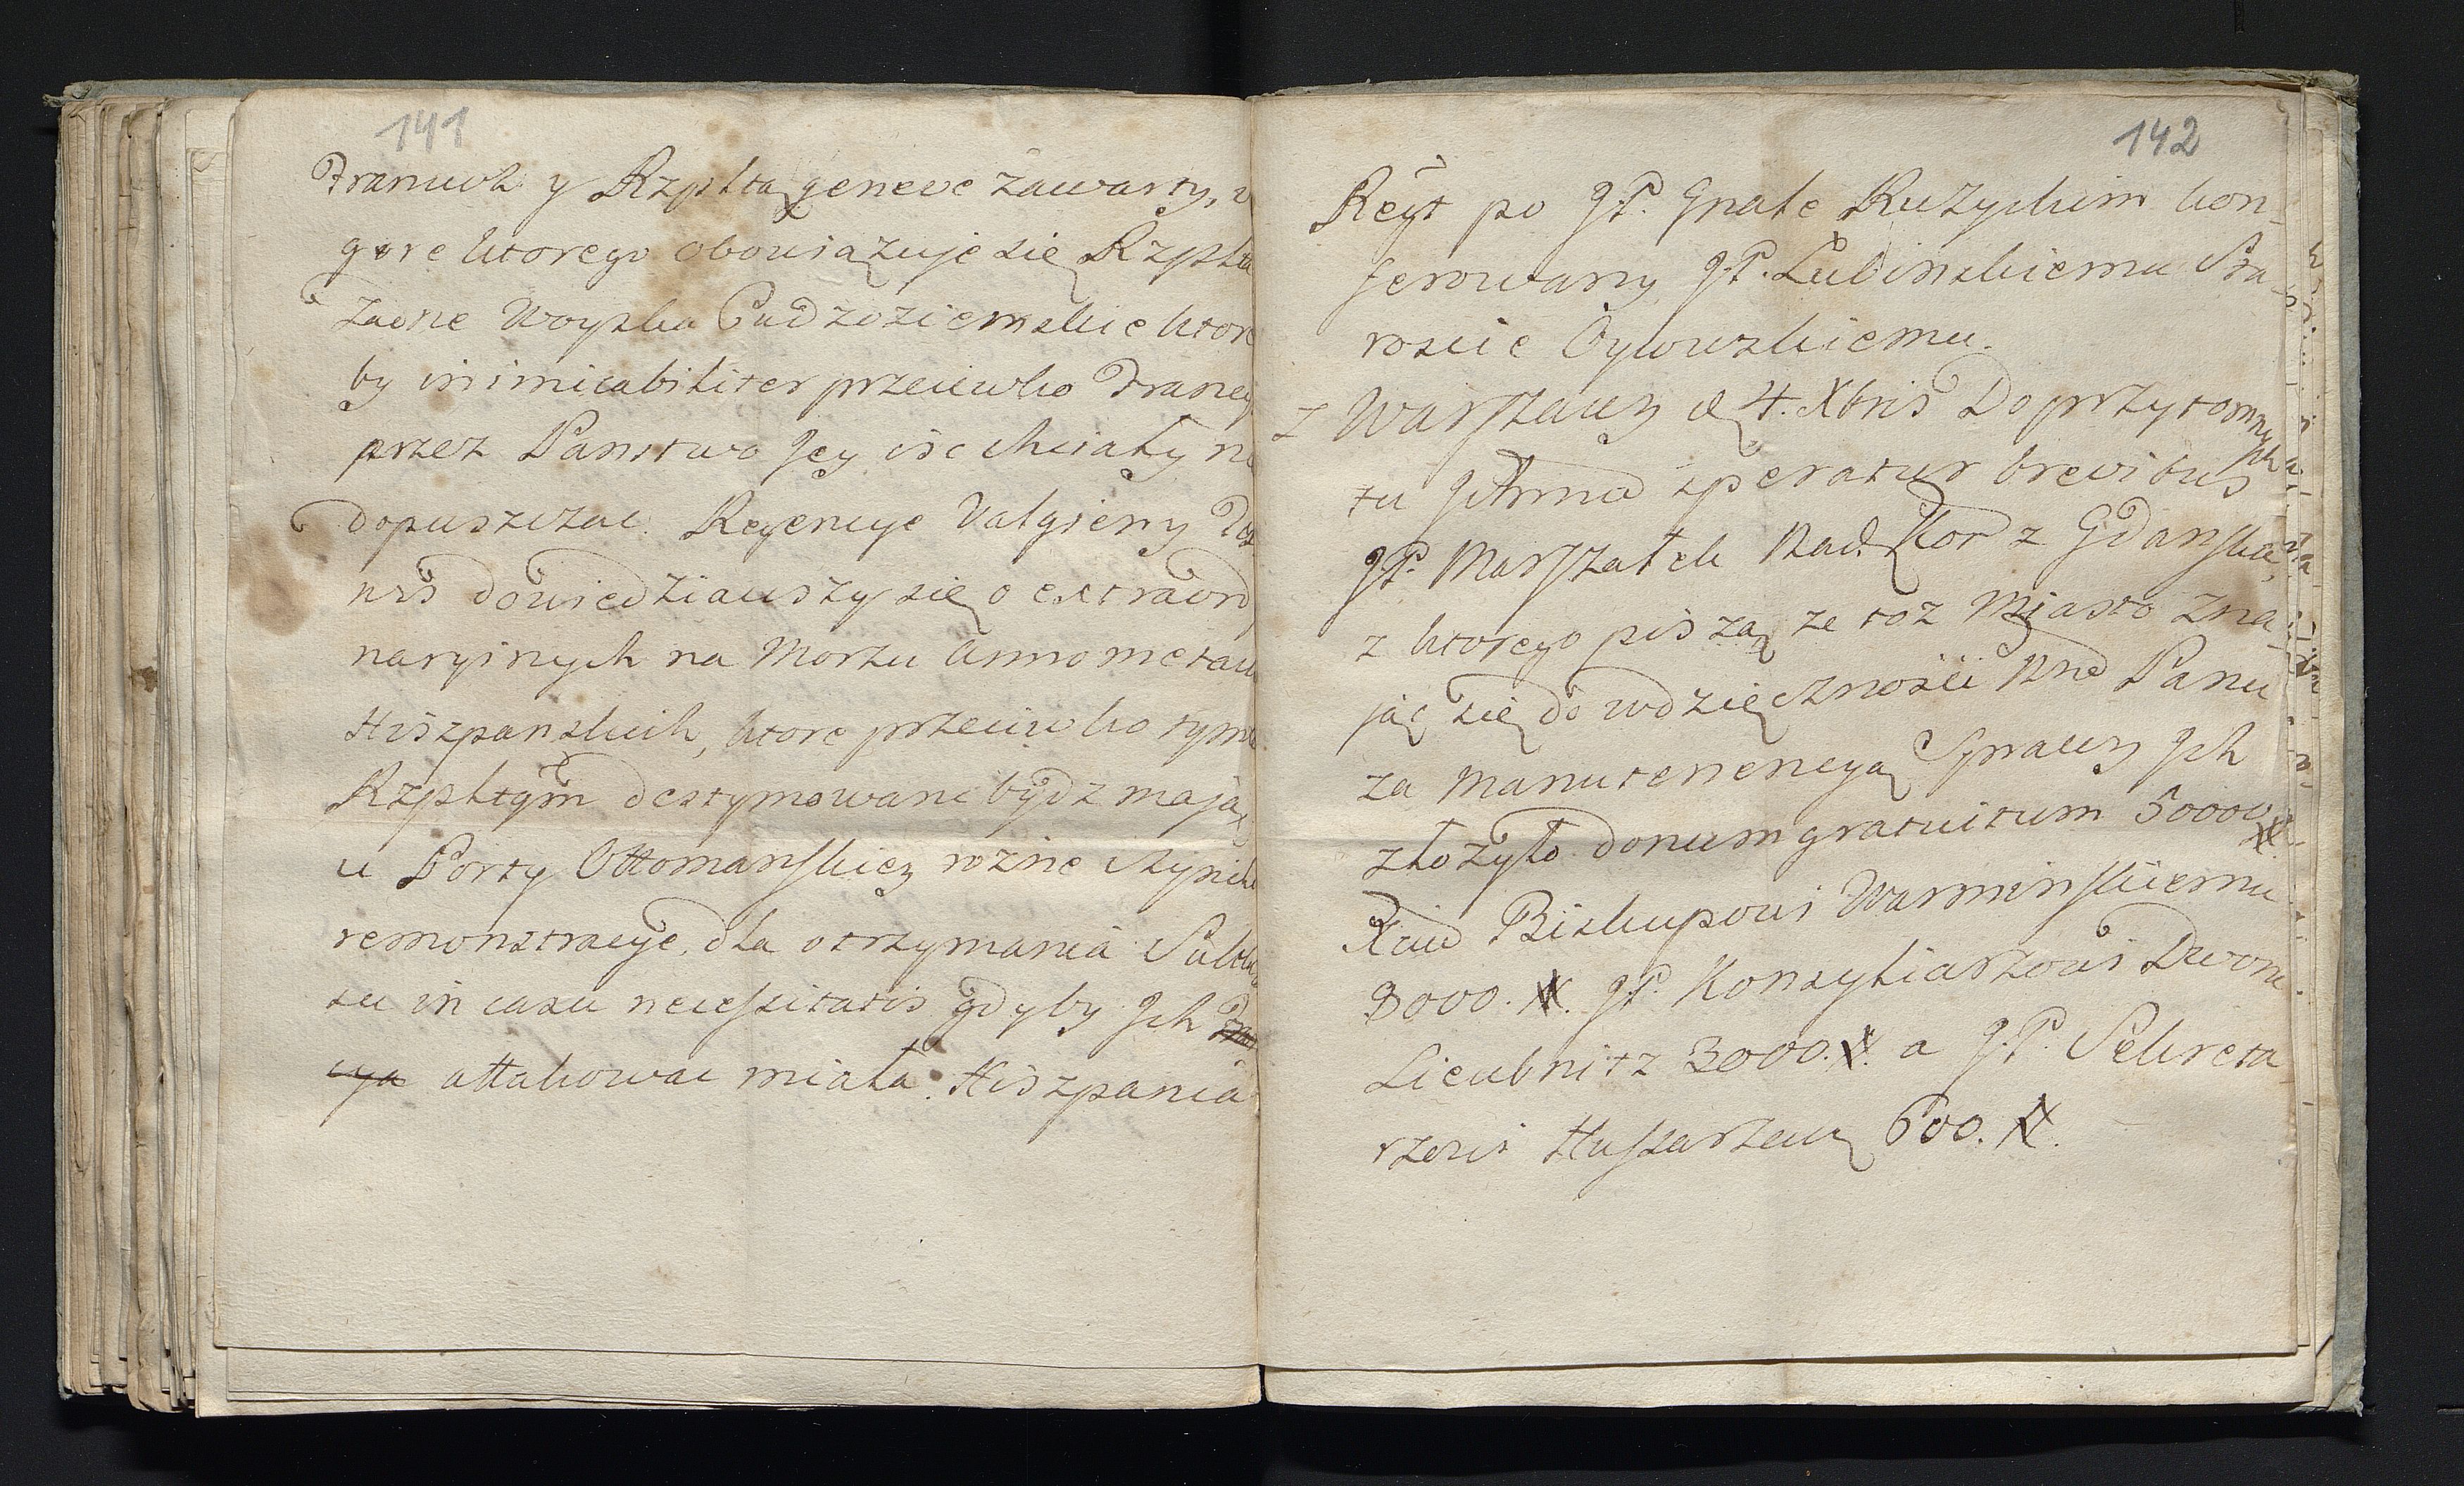 141
Francuzką y Rzpltą geneve zawarty, w
gore ktorego obowiązuje się Rzplta
żadne Woyska Cudzoziemskie ktore
by inimicabiliter przeciwko Francy
przez Panstwo Jey isc chciały ni
dopuszczac. Regencye Valgiery
dowiedziawszy się o extraord
naryinych na Morzu Armometaw
Hiszpanskich, ktore przeciwko tym
Rzpltym destymowane bydz mają
u Porty Ottomanskiey rożne czyni
remonstracye, dla otrzymania Sukku
su in casu necessitatis gdyby Ich
cya attakowac miała. Hiszpania
142
Regt po JP. Gnale Ruzyckim kon-
ferowany JP. Lubinskiemu Sta-
roscie Bytowskiemu.
z Warszawy d 4. Xbris Do przytomnych
tu speratur brevibus
JP. Marszałek Nad. Kor z Gdanska,
z ktorego piszą ze toz Miasto zna-
jąc się do wdzięcznosci Nne Panu
za manutenencyą Sprawy Ich
złozyło donum gratuitum 50000 #
Xciu Biskupowi Warminskiemu
8000. #. JP. Konsyliarzowi Dworu
Lieubnitz 3000. #. a JP. Sekreta-
rzowi 600. #.